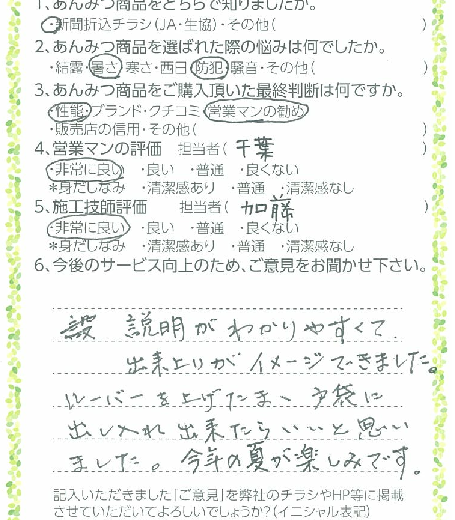 1、あんみつ商品をどちらで知りましたか。
・新聞折込チラシ(JA・生協)・その他( )
2、あんみつ商品を選ばれた際の悩みは何でしたか。
・結露・暑さ・寒さ・西日・防犯・騒音・その他( )
3、あんみつ商品をご購入頂いた最終判断は何ですか。
・性能・ブランド・クチコミ・営業マンの勧め
・販売店の信用・その他( )
4、営業マンの評価 担当者( 千葉 )
・非常に良い ・良い ・普通 ・良くない
*身だしなみ ・清潔感あり ・普通 ・清潔感なし
5、施工技師評価 担当者( 加藤 )
・非常に良い ・良い ・普通 ・良くない
*身だしなみ ・清潔感あり ・普通 ・清潔感なし
6、今後のサービス向上のため、ご意見をお聞かせ下さい。
設 説明がわかりやすくて
出来上りがイメージできました。
ルーバーを上げたまゝ戸袋に
出し入れ出来たらいいと思い
ました。今年の夏が楽しみです。
記入いただきました「ご意見」を弊社のチラシやHP等に掲載
させていただいてよろしいでしょうか?(イニシャル表記)